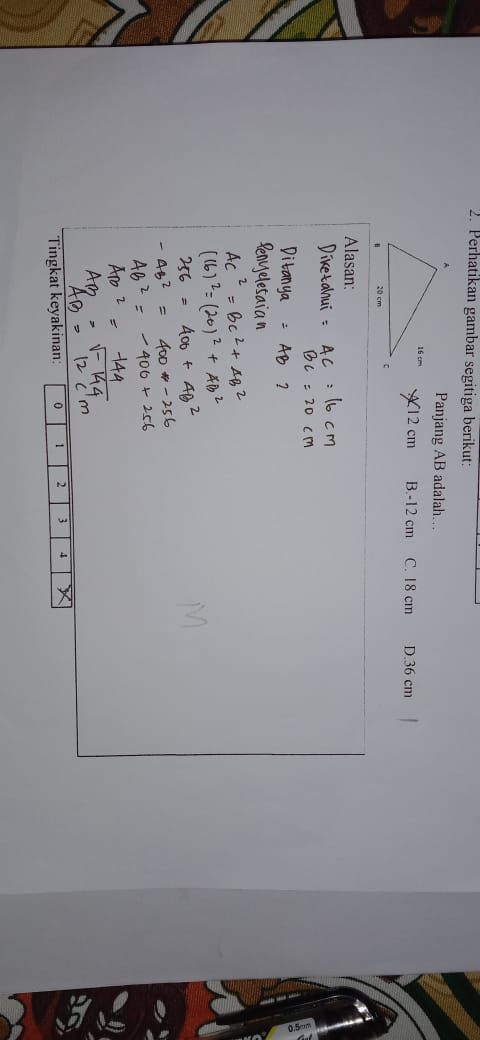 2. Perhatikan gambar segitiga berikut:
Panjang AB adalah...
A
16 cm
B
20 cm
C
A. 12 cm B.-12 cm C. 18 cm D.36 cm
Alasan:
Diketahui = AC : 16 cm
BC = 20 cm
Ditanya = AB ?
Penyelesaian
AC² = BC² + AB²
(16)² = (20)² + AB²
256 = 400 + AB²
- AB² = 400 - 256
AB² = - 400 + 256
AB² = -144
AB = √-144
AB = 12 cm
M
Tingkat keyakinan: 0 1 2 3 4
0.5mm